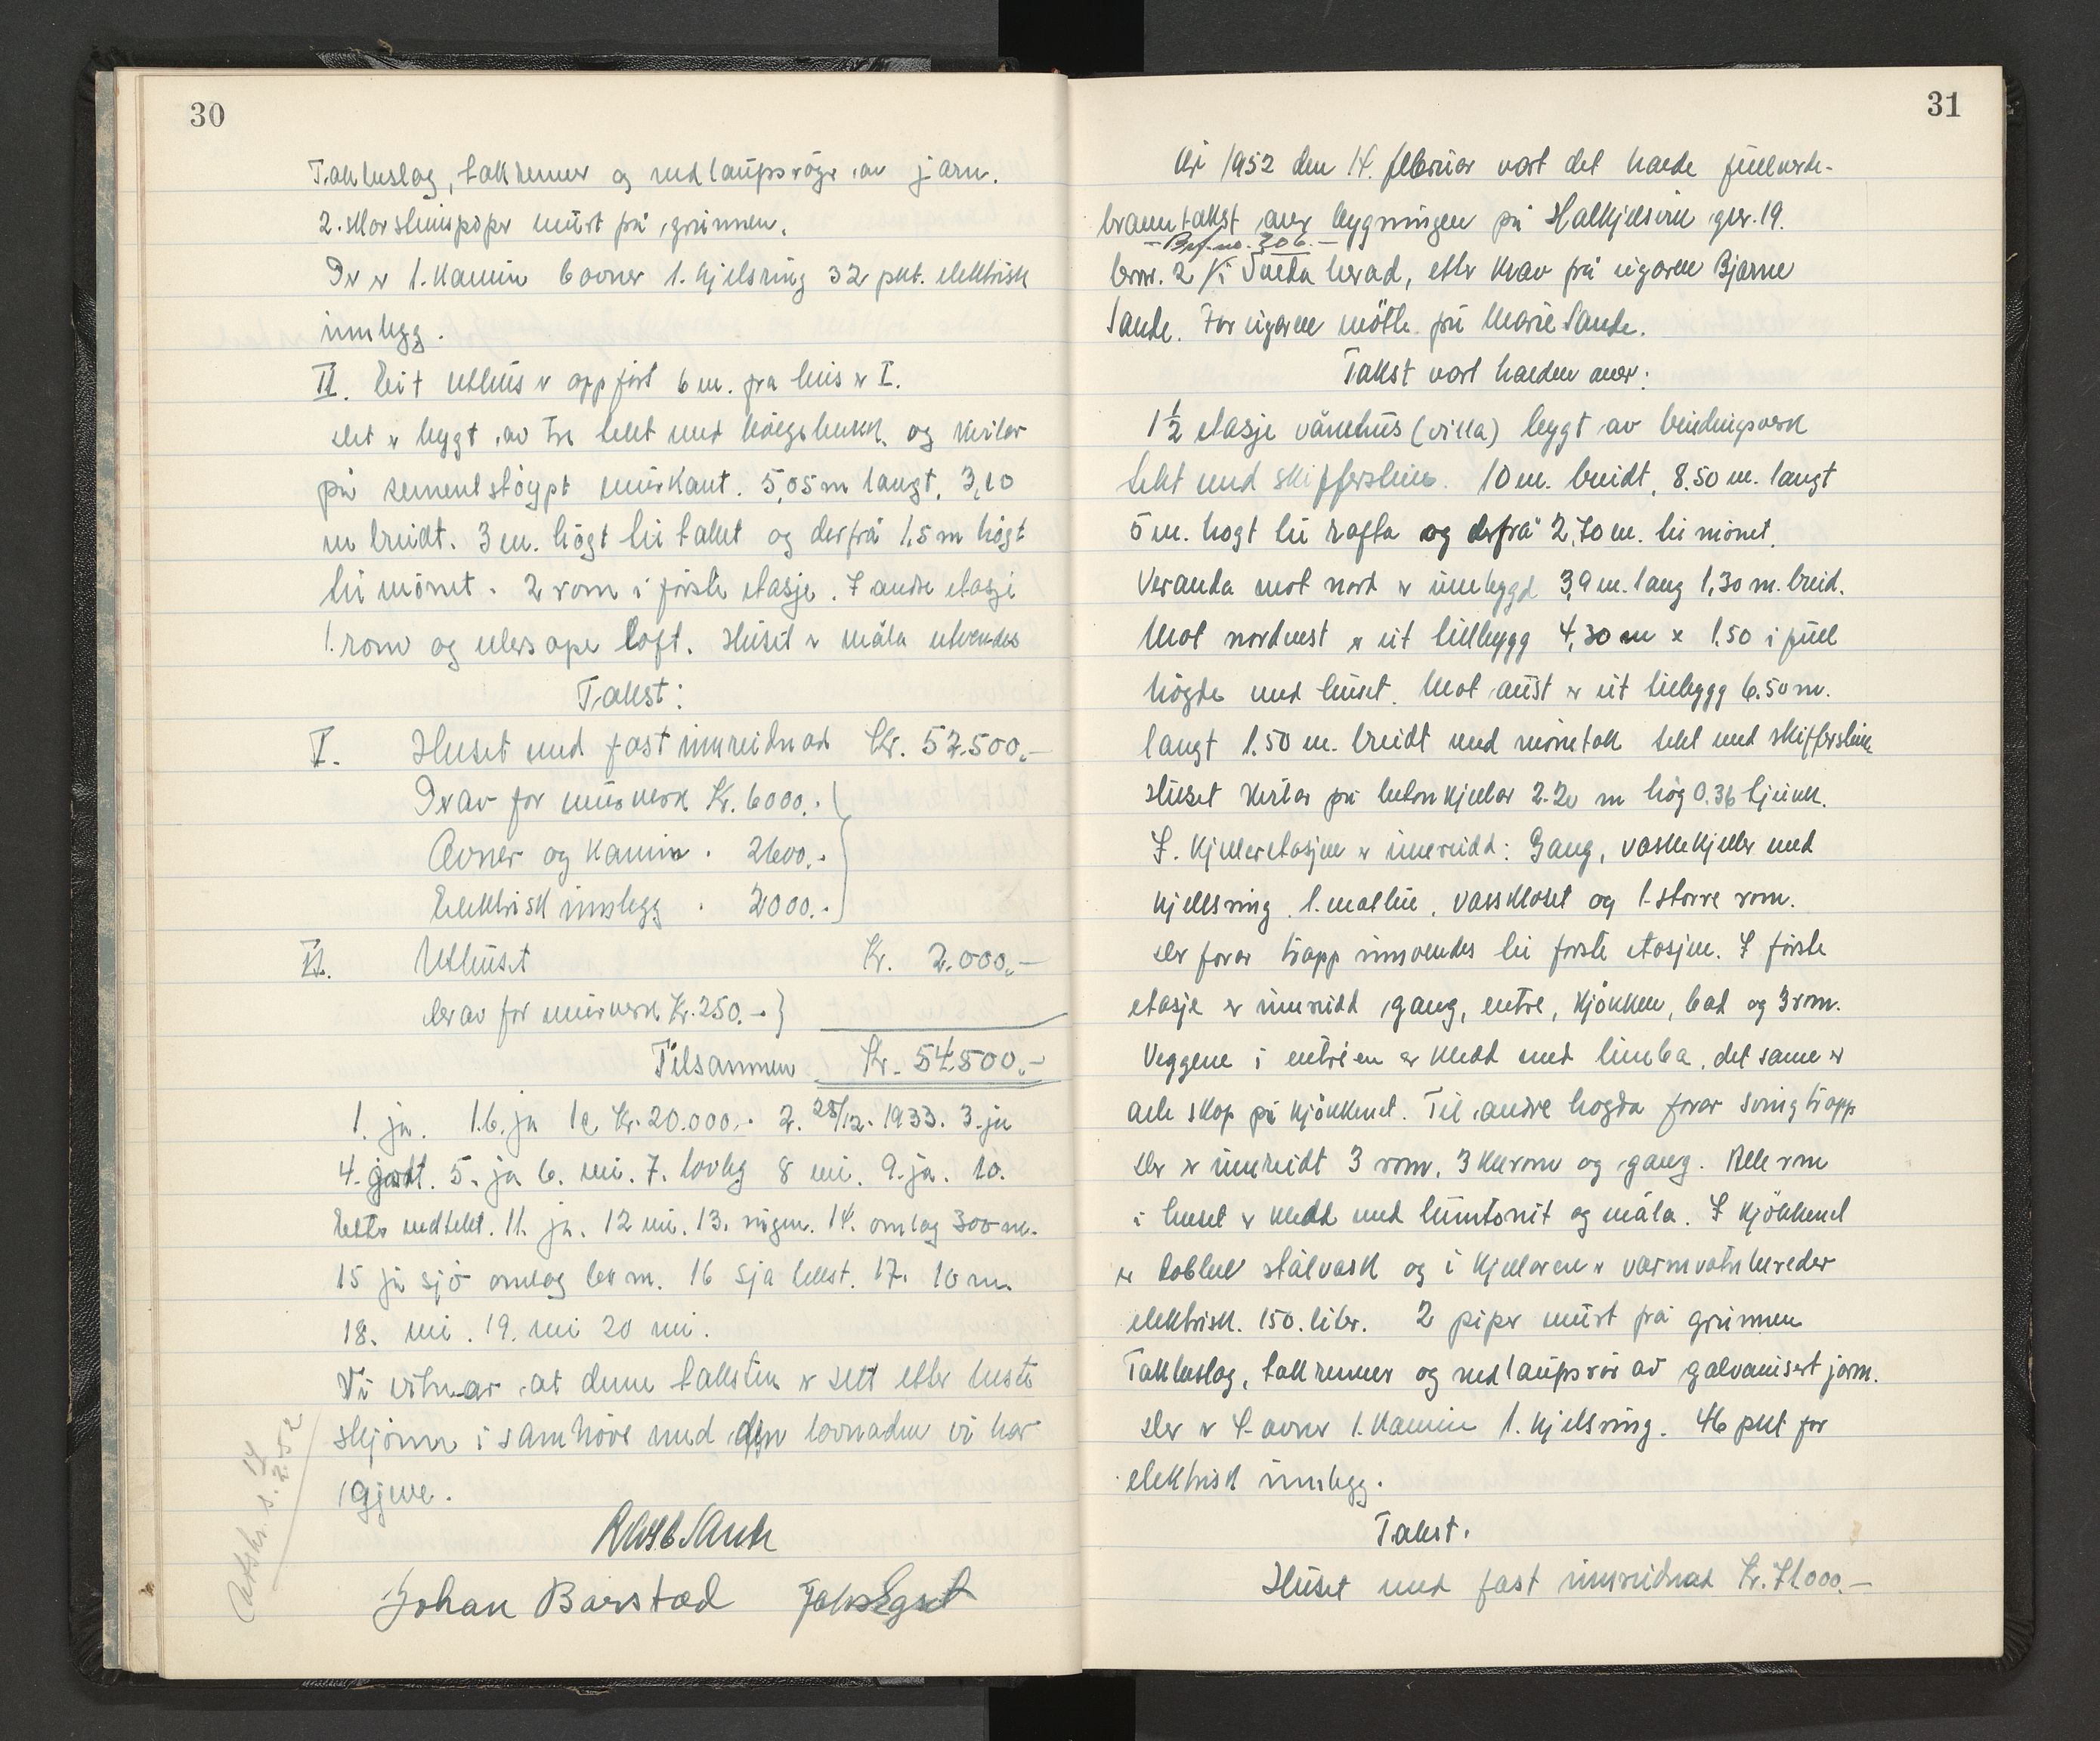 30
Takbeslag, takrenner og nedlaupsrøyr av jarn.
2. skorsteinspiper mùrt frå grùnnen.
Der er 1. Kamin 6 ovner 1. kjelsring 32 pkt. elektrisk
innlegg.
II. Eit ùthùs er oppfört 6 m. fra hùs er I.
Det er bygt av tre tekt med bölgeblekk og kviler
på sementstöypt mùrkant. 5,05 m langt, 3,10
m breidt. 3 m. högt til taket og derfrå 1,5 m högt
til mönet. 2 rom i förste etasje. I andre etasje
1. rom og ellers ope loft. Hùset er måla utvendes
Takst:
I. Hùset med fast innreidnad Kr. 52.500.-
Derav for mùrverk Kr. 6000.-
Ovner og Kamin - 2600.-
Elektrisk innlegg - 2000.-
II. Uthùset Kr. 2.000.-
derav for mùrverk Kr. 250.-
Tilsammen Kr. 54.500.-
1. ja. 1b. ja 1c Kr. 20.000.- 2. 28/12. 1933. 3. ja
4. godt. 5. ja 6. nei. 7. lovleg 8 nei. 9. ja. 10.
Elter vedtekt. 11. ja. 12 nei. 13. ingen. 14. omlag 300 m.
15 frå sjö omlag m. 16 Sjå tekst. 17. 10 m.
18. nei. 19. nei 20 nei.
Vi vitnar at denne taksten er sett etter beste
skjönn i samhöve med den lovnaden vi har
gjeve.
Sande
Johan Barstad Egset
Utskr. s. 14/2. 52
31
År 1952 den 14. februar vart det halde fùllverde-
branntakst over bygningen på Halkjelsvik gnr. 19.
- Brf. no. 306. -
bnr. 2 i Volda herad, etter krav frå eigaren Bjarne
Sande. For eigaren mötte frù Marie Sande.
Takst vart halden over:
1½ etasje vånehùs (villa) bygt av bindingsverk
tekt med skifferstein. 10 m. breidt, 8.50 m. langt
5 m. hogt til rafta og derfrå 2,70 m. til mönet.
Veranda mot nord er innbygd 3,9 m. lang 1,30 m. breid.
Mot nordvest er eit tillbygg 4,30 m x 1.50 i fùll
högde med hùset. Mot aùst er eit tilbygg 6.50 m.
langt 1.50 m. breidt med mönetak tekt med skifferstein
Hùset kviler på betonkjellar 2.20 m hög 0.36 tjùkk.
I. Kjelleretasjen er innreidd: Gang, vaskekjeller med
kjellsring. 1. matbù. vassklosett og 1. större rom.
Der forar trapp innvendes til forste etasjen. I förste
etasje er innreidd gang, entre, kjökken, bad og 3 rom.
Veggene i entréen er kledd med limba, det same er
alle skop på kjökkenet. Til andre hogda forar svingtrapp
Der er innreidt 3 rom, 3 klerom og gang. Alle rom
i huset er kledd med hùntonit og måla. I kjökkenet
er dobbel stålvask og i kjellaren er varmvatnbereder
elektrisk. 150. liter. 2 piper mùrt frå grùnnen
Takbeslag, takrenner og nedlaùpsrör av galvanisert jarn.
Der er 4. ovner 1. Kamin 1. kjelsring. 46 pkt for
elektrisk innlegg.
Takst.
Hùset med fast innreidnad Kr. 71.000.-